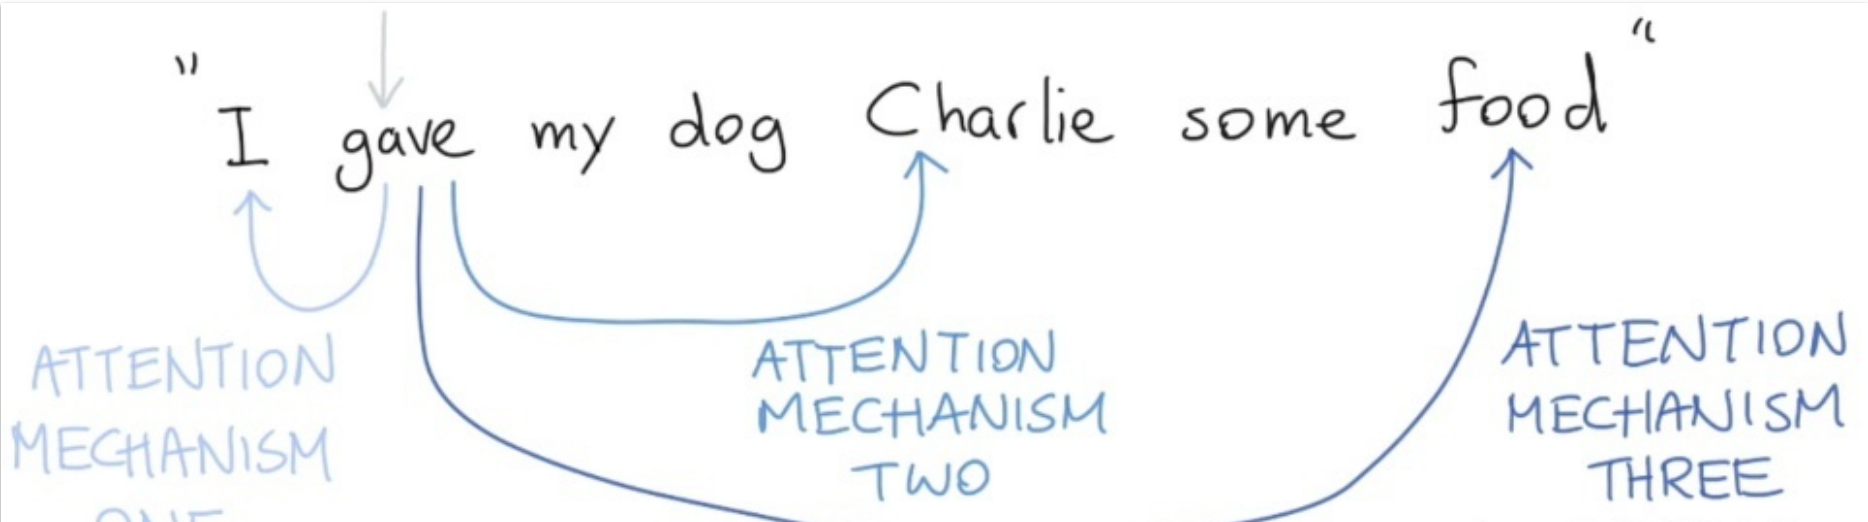 "I gave my dog Charlie some food"
ATTENTION
MECHANISM
ONE
ATTENTION
MECHANISM
TWO
ATTENTION
MECHANISM
THREE